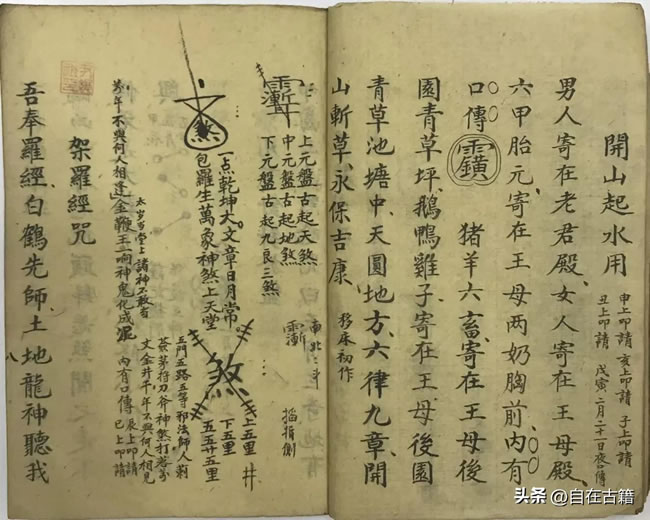 開山起水用
申上叩請 亥上叩請 子上叩請
丑上叩請 戊寅二月二十一日夜傳
男人寄在老君殿女人寄在王母殿
六甲胎元寄在王母两奶胸前内有
口傳 猪羊六畜寄在王母後
園青草坪鵝鴨雞子寄在王母後園
青草池塘中天圓地方六律九章開
山斬草永保吉康 移床初作
上元盤古起天煞
中元盤古起地煞
下元盤古起九良三煞
一点乾坤大文章日月常
包羅生萬象神煞上天堂
煞
上五里
下五里
五五廿五里
井
太岁当堂上諸神不敢當
萬年不與何人相逢金鞭王一响神鬼化成泥
五門五路五等邪法師人
茶茅将刀斧神煞打落
文金井千年不與何人相見
内有口傳 辰上叩請
巳上叩請
架羅經咒
吾奉羅經白鶴先師土地龍神聽我
八
头条@自在古籍